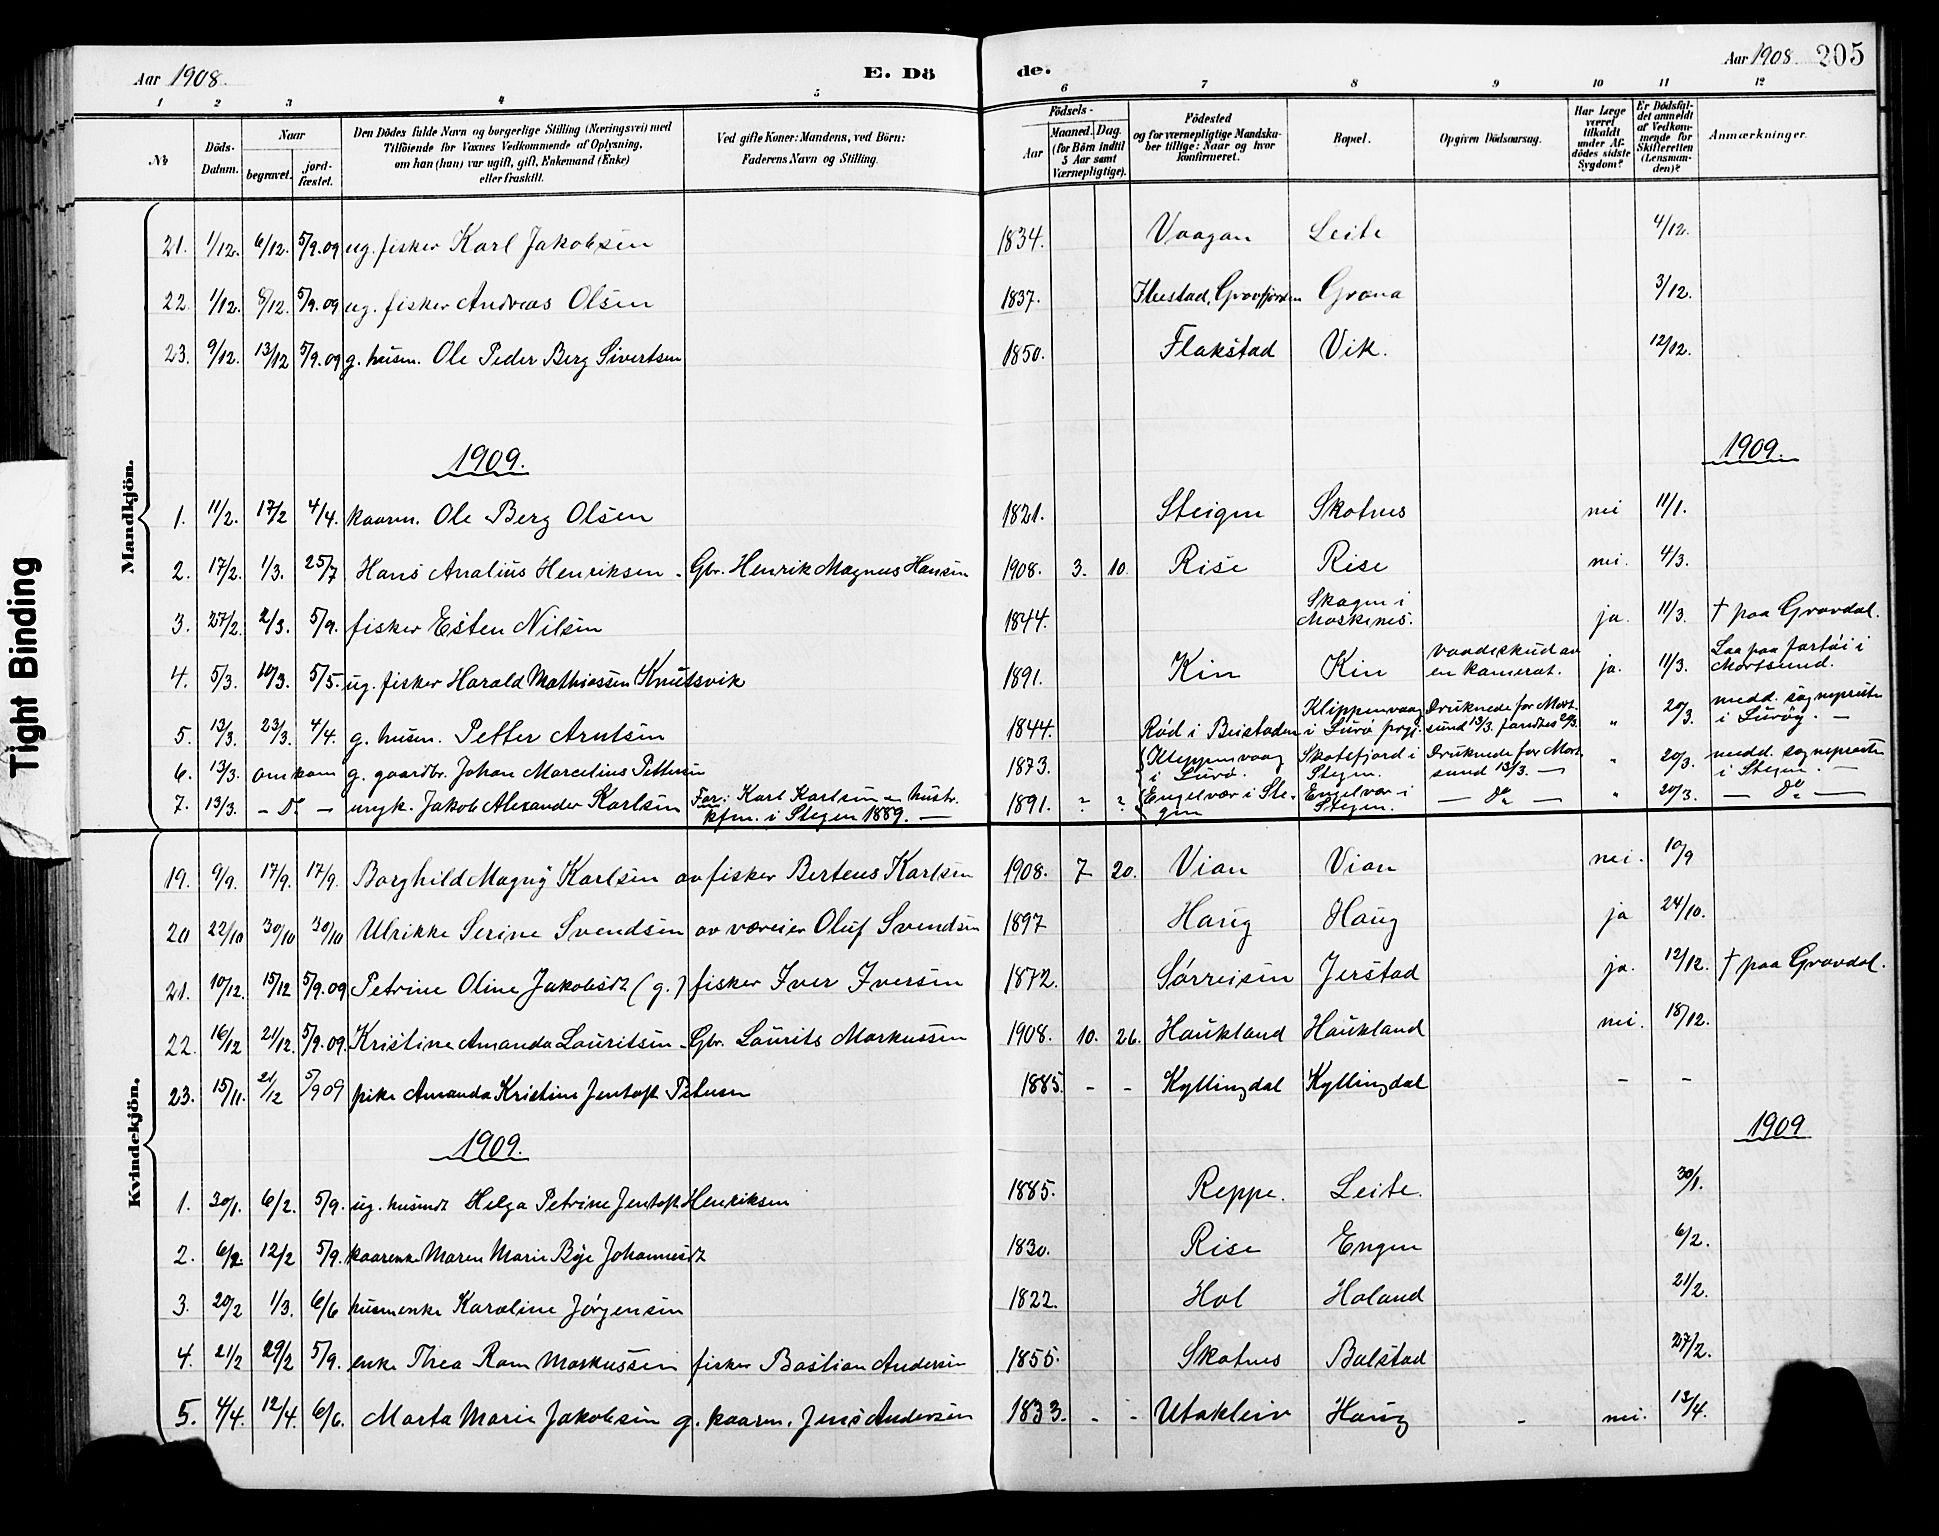 Aar 1908.
E. Dö
de.
Aar 1908. 205
1 2 3 4 5 6 7 8 9 10 11 12
No
Döds-Datum.
Naar
begravet.
jord-fæstet.
Den Dödes fulde Navn og borgerlige Stilling (Næringsvei) med
Tilföiende for Voxnes Vedkommende af Oplysning,
om han (hun) var ugift, gift, Enkemand (Enke)
eller fraskilt.
Ved gifte Koner: Mandens, ved Börn:
Faderens Navn og Stilling.
Födsels-
Aar
Maaned. Dag.
(for Börn indtil
5 Aar samt
Værnepligtige).
Födested
og for værnepligtige Mandska-
ber tillige: Naar og hvor
konfirmeret.
Bopæl.
Opgiven Dödsaarsag.
Har Læge
været
tilkaldt
under Af-
dödes sidste
Sygdom?
Er Dödsfal-
det anmeldt
af Vedkom-
mende for
Skifteretten
(Lensman-
den)?
Anmærkninger.
Mandkjön.
21. 1/12. 6/12. 5/9.09 ug. fisker Karl Jakobsen 1834. Vaagan Leite 4/12.
22. 1/12. 8/12. 5/9.09 ug. fisker Andreas Olsen 1837. Grovfjorden 3/12.
23. 9/12. 13/12 5/9.09 g. husm. Ole Peder Berg Sivertsen 1850. Flakstad Vik. 12/12.
1909. 1909.
1. 11/2. 17/2 4/4. kaarm. Ole Berg Olsen 1821. Steigen Skotnes nei 11/1.
2. 17/2. 1/3. 25/7 Hans Analius Henriksen - Gbr. Henrik Magnus Hansen 1908. 3. 10. Rise Rise nei. 4/3.
3. 27/2. 2/3. 5/9. fisker Esten Nilsen 1844. Skagen i Moskenes. ja. 11/3. † paa Gravdal.
4. 5/3. 10/3. 5/5. ug. fisker Harald Mathiassen Knutsvik 1891. Kin Kin vaadeskud av en kamerat. ja. 11/3. Laa paa fartøi i Mortsund.
5. 13/3. 23/3. 4/4. g. husm. Petter Arntsen 1844. Rød i Beistaden Klippenvaag i Lurø prgj. Druknede for Mortsund 13/3. fandtes 20/3. " 20/3. medd. sogneprsten i Lurøy. —
6. 13/3. omkom g. gaardbr. Johan Marcelius Pettersen 1873. Kleppenvaag i Lurø. Skotsfjord i Stegen. Druknede for Mortsund 13/3. — " 20/3. medd. sogneprsten i Stegen. —
7. 13/3. — Do — ungk. Jakob Alexander Karlsen Far: Karl Karlsen - hustr. kfm. i Stegen 1889. — 1891. ? ? Engelvær i Stegen Engelvær i Stegen. — do — " 20/3. — do —
Kvindekjön.
19. 9/9. 17/9. 17/9. Borghild Magny Karlsen av fisker Berteus Karlsen 1908. 7 20. Vian Vian nei. 10/9
20 22/10 30/10 30/10 Ulrikke Serine Svendsen av væreier Oluf Svendsen 1897 Haug Haug ja 24/10.
21. 10/12. 15/12 5/9.09 Petrine Oline Jakobsdt (g.) fisker Iver Iversen 1872. Sørreisen Jerstad ja. 12/12. † paa Gravdal.
22. 16/12 21/12. 5/9.09. Kristine Amanda Lauritsen - Gbr. Laurits Markussen 1908. 10. 26. Haukland Haukland nei. 18/12.
23. 15/11. 21/12 5/9 09 pike Amanda Kristine Jentoft Petersen 1885 - - Kyllingdal Kyllingdal - -
1909. 1909
1. 30/1. 6/2. 5/9. ug. husmdt Helga Petrine Jentoft Henriksen 1885. Reppe. Leite. 30/1.
2. 6/2. 12/2 5/9. kaarenke Maren Marie Bye Johannesdt 1830. Rise Engen 6/2.
3. 20/2 1/3. 6/6 husmenke Karoline Jørgensen 1822. Hol Holand 21/2.
4. 21/2 29/2 5/9. enke Thea Ram Markussen fisker Bastian Andersen 1855. Skotnes Balstad 27/2.
5. 4/4. 12/4. 6/6. Marta Marie Jakobsen g. kaarm. Jens Andersen 1833. - - Utakleiv Haug - nei. 13/4.
Tight Binding